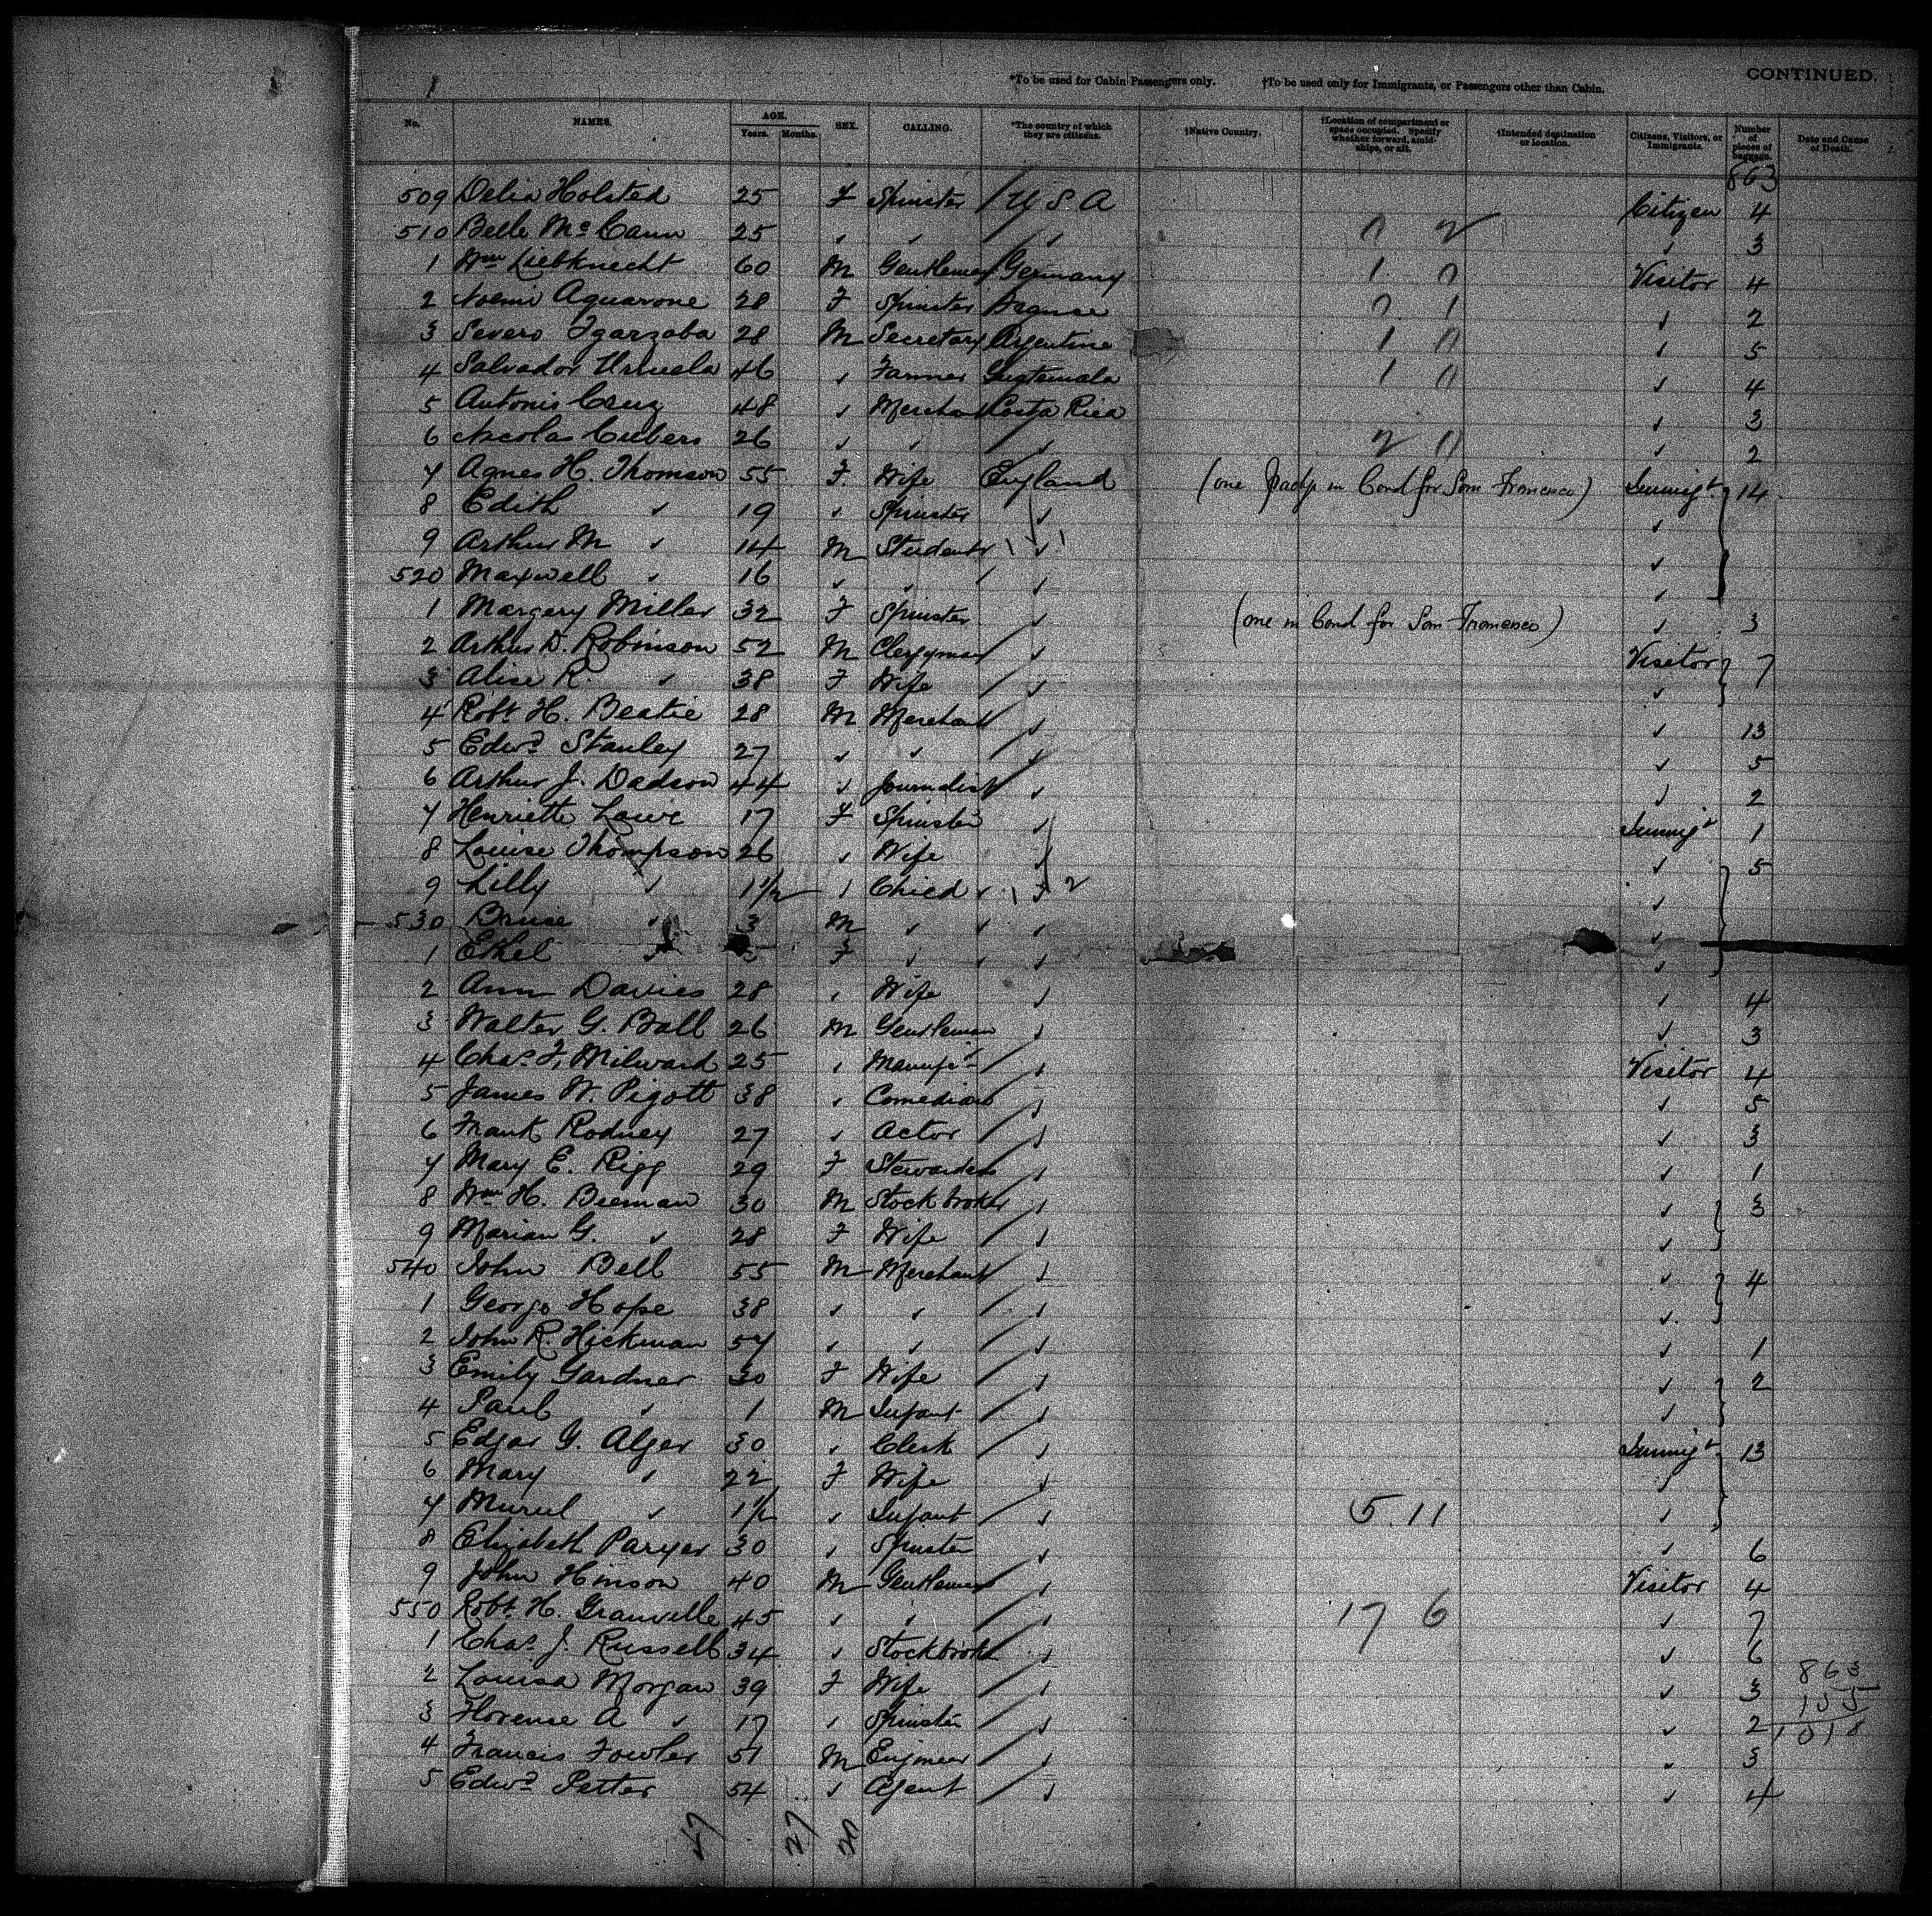 CONTINUED.
*To be used for Cabin Passengers only. †To be used only for Immigrants, or Passengers other than Cabin.
No. NAMES. AGE. Years. Months. SEX. CALLING. *The country of which they are citizens. †Native Country. †Location of compartment or space occupied. Specify whether forward, amidships, or aft. †Intended destination or location. Citizens, Visitors, or Immigrants. Number of pieces of baggage. Date and Cause of Death.
863
509 Delia Holsted 25 F Spinster U S A Citizen 4
510 Belle McCann 25 ✓ ✓ ✓ ✓ 3
1 Wm Liebknecht 60 M Gentleman Germany Visitor 4
2 Noemi Aquarone 28 F Spinster ✓ 2
3 Severo Igarzaba 28 M Secretary Argentine ✓ 5
4 Salvador Urruela 46 ✓ Farmer Guatemala ✓ 4
5 Antonio Cruz 48 ✓ Merchant Costa Rica ✓ 3
6 Nicolas Cubero 26 ✓ ✓ ✓ ✓ 2
7 Agnes H. Thomson 55 F Wife England (one in Bond for San Francisco) Immigt 14
8 Edith ✓ 19 ✓ Spinster ✓ ✓
9 Arthur M ✓ 14 M Student ✓ ✓
520 Maxwell ✓ 16 ✓ ✓ ✓ ✓
1 Margery Miller 32 F Spinster ✓ (one in Bond for San Francisco) ✓ 3
2 Arthur D. Robinson 52 M Clergyman ✓ Visitor 7
3 Alice R ✓ 38 F Wife ✓ ✓
4 Robt H. Beatie 28 M Merchant ✓ ✓ 13
5 Edwd Stanley 27 ✓ ✓ ✓ ✓ 5
6 Arthur J. Dadson 44 ✓ Journalist ✓ ✓ 2
7 Henriette Lowe 17 F Spinster ✓ Immigt 1
8 Louise Thompson 26 ✓ Wife ✓ ✓ 5
9 Lilly ✓ 1½ ✓ Child ✓ ✓
530 Bruce ✓ 3 M ✓ ✓ ✓
1 Ethel ✓ F ✓ ✓ ✓
2 Ann Davies 28 ✓ Wife ✓ ✓ 4
3 Walter G. Ball 26 M Gentleman ✓ ✓ 3
4 Chas F. Milward 25 ✓ Manufr ✓ Visitor 4
5 James W. Pigott 38 ✓ Comedian ✓ ✓ 5
6 Frank Rodney 27 ✓ Actor ✓ ✓ 3
7 Mary E. Rigg 29 F Stewardess ✓ ✓ 1
8 Wm H. Beeman 30 M Stockbroker ✓ ✓ 3
9 Marian G. ✓ 28 F Wife ✓ ✓
540 John Bell 55 M Merchant ✓ ✓ 4
1 George Hope 38 ✓ ✓ ✓ ✓
2 John R. Hickman 57 ✓ ✓ ✓ ✓ 1
3 Emily Gardner 30 F Wife ✓ ✓ 2
4 Paul ✓ 1 M Infant ✓ ✓
5 Edgar G. Alger 30 ✓ Clerk ✓ Immigt 13
6 Mary ✓ 22 F Wife ✓ ✓
7 Muriel ✓ 1½ ✓ Infant ✓ 5 11 ✓
8 Elizabeth Paryer 30 ✓ Spinster ✓ ✓ 6
9 John Hinson 40 M Gentleman ✓ Visitor 4
550 Robt H. Granville 45 ✓ ✓ ✓ 17 6 ✓ 7
1 Chas J. Russell 34 ✓ Stockbroker ✓ ✓ 6
2 Louisa Morgan 39 F Wife ✓ ✓ 3 863
3 Florence A ✓ 17 ✓ Spinster ✓ ✓ 2 155
1018
4 Francis Fowler 51 M Engineer ✓ ✓ 3
5 Edwd Petter 54 ✓ Agent ✓ ✓ 4
47 27 20